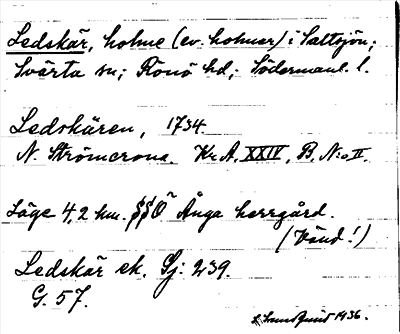 Ledskär, holme (ev. holmar) i Saltsjön;
Svärta sn; Rönö hd; Södermanl. l.
Ledskären, 1734.
N. Strömcrona. Kr A, XXIV, B, N:o II.
Läge 4,2 km. SSO Ånga herrgård.
(Vänd!)
Ledskär ek. Gj: 239.
G. 57.
1936.